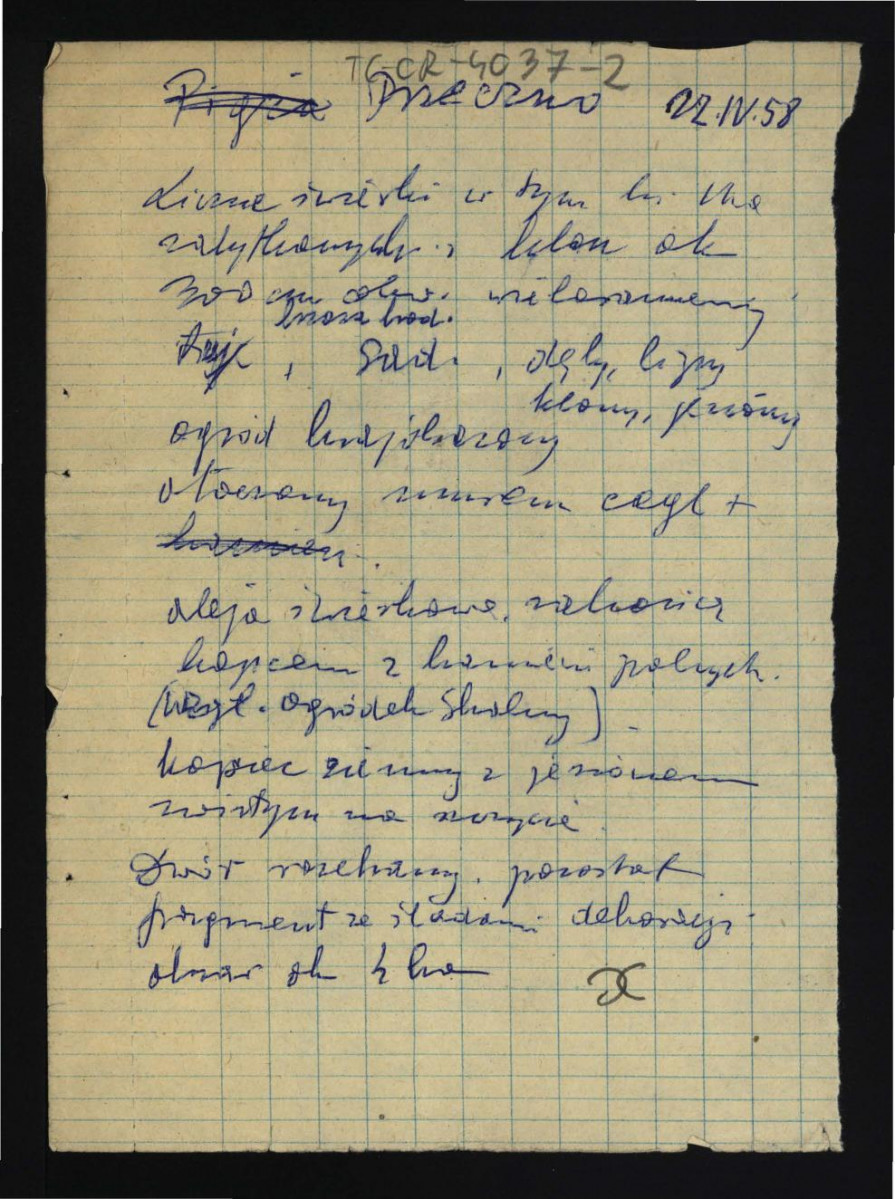 TG-CR-4037-2
Przeczno 22.IV.58
Liczne świerki w tym
zabytkowych. klon ok
300 cm obw. wieloramienny
brzoza brod.
, Sad. , dęby, lipy
klony, jesiony
ogród krajobrazowy
otoczony murem cegl +
kamien.
aleja świerkowa, zakończ
kopcem z kamieni polnych.
(wzgl. ogródek Szkolny)
kopiec ziemny z jesionem
zwisłym na szczycie.
Dwór rozebrany. pozostał
fragment ze śladami dekoracji
obszar ok 4 ha